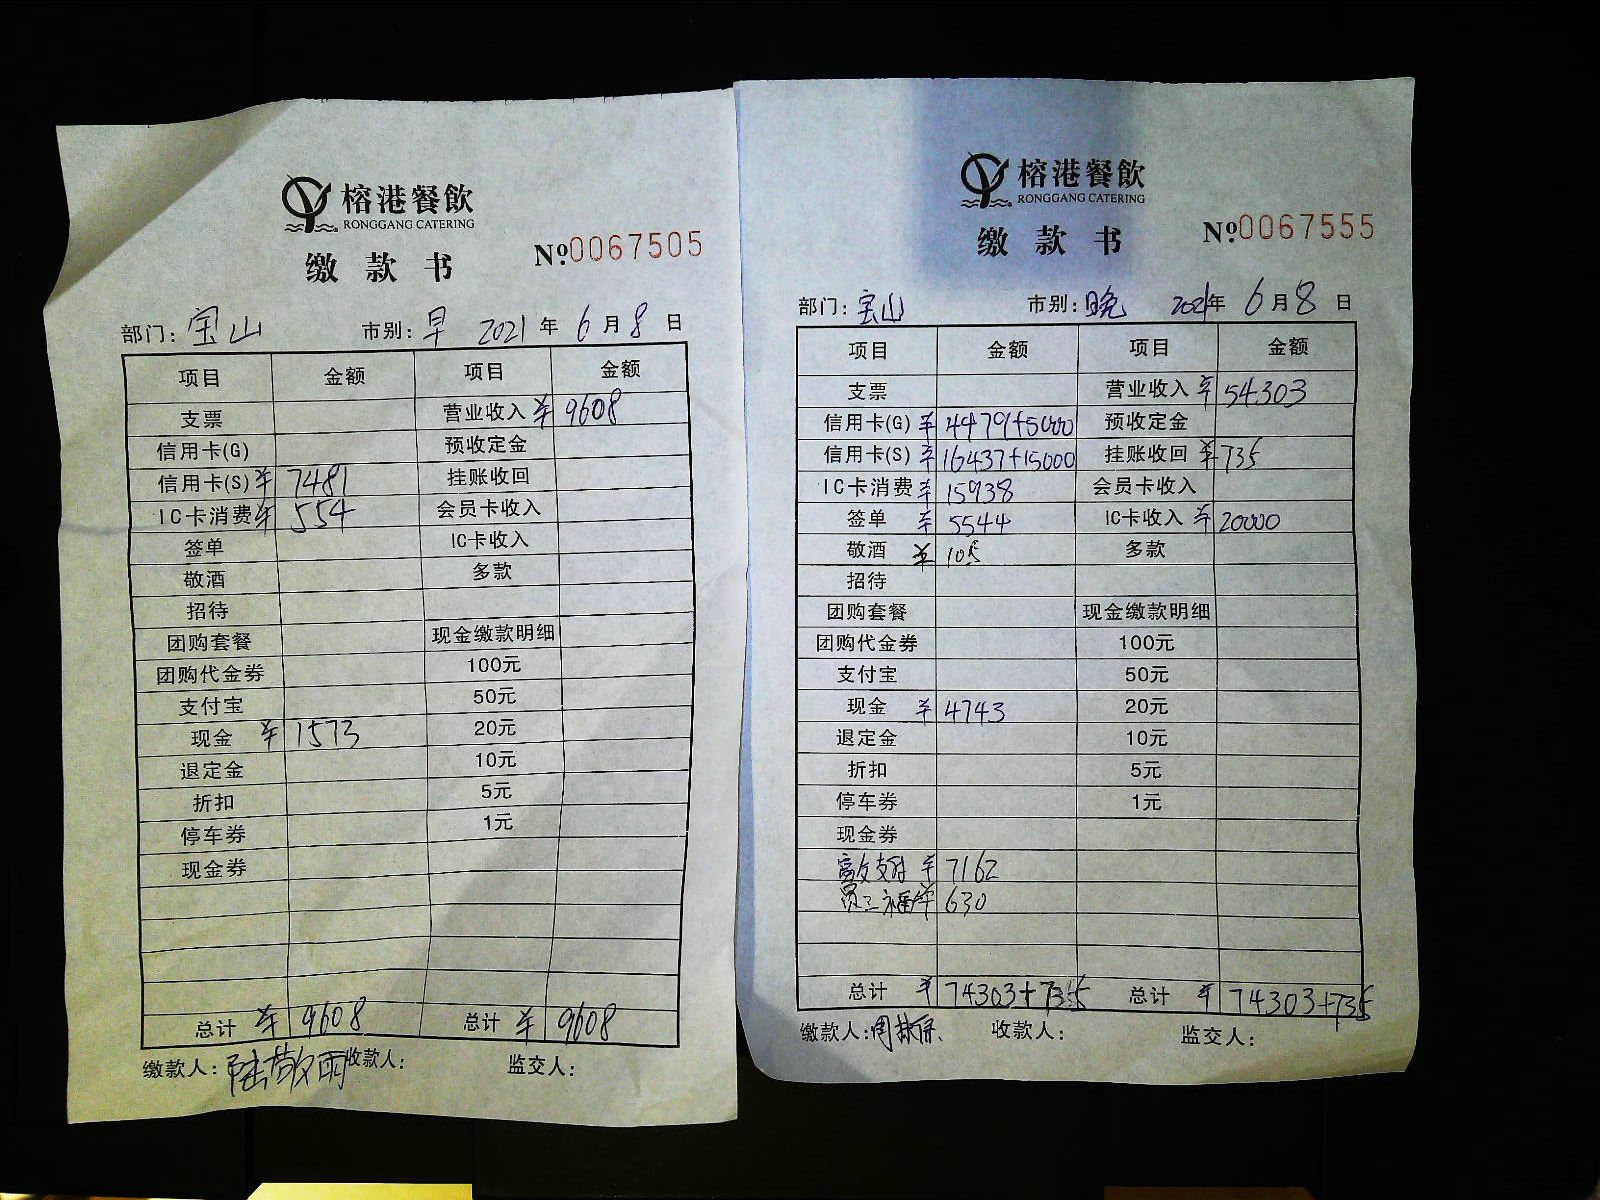 榕港餐飲
RONGGANG CATERING
缴款书
№0067505
部门: 宝山 市别: 早 2021年 6月8日
项目 金额 项目 金额
支票 营业收入 ¥9608
信用卡(G) 预收定金
信用卡(S) ¥7481 挂账收回
IC卡消费 ¥554 会员卡收入
签单 IC卡收入
敬酒 多款
招待
团购套餐 现金缴款明细
团购代金券 100元
支付宝 50元
现金 ¥1573 20元
退定金 10元
折扣 5元
停车券 1元
现金券
总计 ¥9608 总计 ¥9608
缴款人: 陆敬雨 收款人: 监交人:
榕港餐飲
RONGGANG CATERING
缴款书
№0067555
部门: 宝山 市别: 晚 2021年 6月8日
项目 金额 项目 金额
支票 营业收入 ¥54303
信用卡(G) ¥4479+5000 预收定金
信用卡(S) ¥16437+15000 挂账收回 ¥735
IC卡消费 ¥15938 会员卡收入
签单 ¥5544 IC卡收入 ¥20000
敬酒 ¥105 多款
招待
团购套餐 现金缴款明细
团购代金券 100元
支付宝 50元
现金 ¥4743 20元
退定金 10元
折扣 5元
停车券 1元
现金券
支付 ¥7162
员工福 630
总计 ¥74303+735 总计 ¥74303+735
缴款人: 收款人: 监交人: